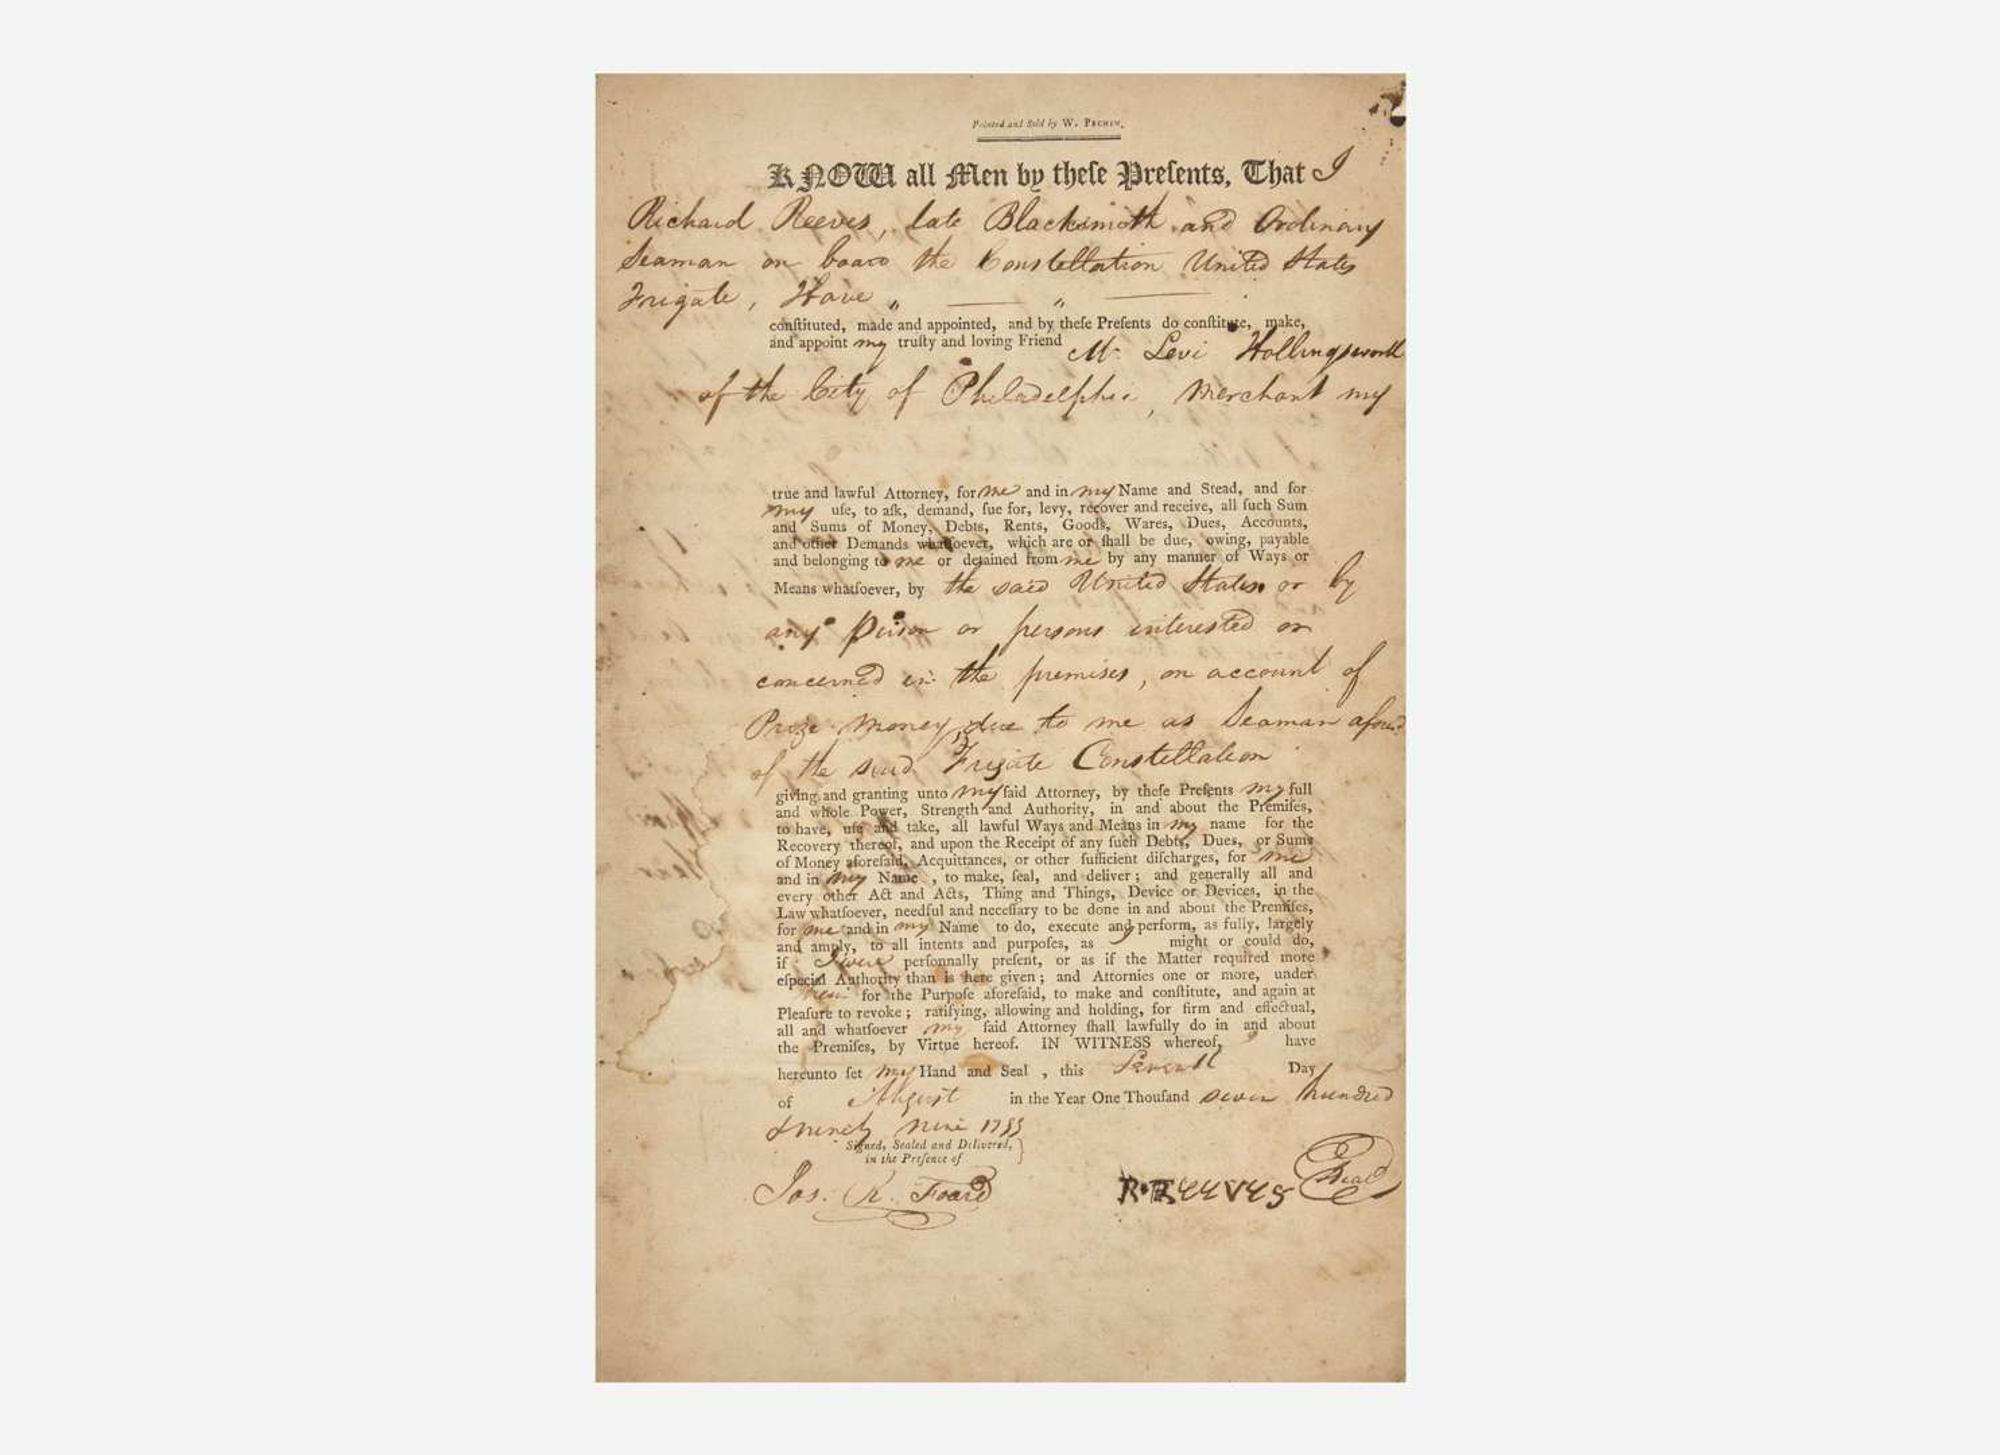 Printed and Sold by W. PECHIN.
KNOW all Men by theſe Preſents, That I
Richard Reeves, late Blacksmith and Ordinary
Seaman on board the Constellation United States
Frigate, Have „ —— „ ——
conſtituted, made and appointed, and by theſe Preſents do conſtitute, make,
and appoint my truſty and loving Friend Mr. Levi Hollingsworth
of the City of Philadelphia, Merchant my
true and lawful Attorney, for me and in my Name and Stead, and for
my uſe, to aſk, demand, ſue for, levy, recover and receive, all ſuch Sum
and Sums of Money, Debts, Rents, Goods, Wares, Dues, Accounts,
and other Demands whatſoever, which are or ſhall be due, owing, payable
and belonging to me or detained from me by any manner of Ways or
Means whatſoever, by the said United States or by
any person or persons interested or
concerned in the premises, on account of
Prize Money, due to me as Seaman
of the said Frigate Constellation
giving and granting unto my ſaid Attorney, by theſe Preſents my full
and whole Power, Strength and Authority, in and about the Premiſes,
to have, uſe and take, all lawful Ways and Means in my name for the
Recovery thereof, and upon the Receipt of any ſuch Debts, Dues, or Sums
of Money aforeſaid, Acquittances, or other ſufficient diſcharges, for me
and in my Name , to make, ſeal, and deliver ; and generally all and
every other Act and Acts, Thing and Things, Device or Devices, in the
Law whatſoever, needful and neceſſary to be done in and about the Premiſes,
for me and in my Name to do, execute and perform, as fully, largely
and amply, to all intents and purpoſes, as I might or could do,
if I were perſonnally preſent, or as if the Matter required more
eſpecial Authority than is here given ; and Attornies one or more, under
for the Purpoſe aforeſaid, to make and conſtitute, and again at
Pleaſure to revoke ; ratifying, allowing and holding, for firm and effectual,
all and whatſoever my ſaid Attorney ſhall lawfully do in and about
the Premiſes, by Virtue hereof. IN WITNESS whereof, I have
hereunto ſet my Hand and Seal , this Seventh Day
of August in the Year One Thouſand seven hundred
& ninety nine 1799
Signed, Sealed and Delivered, }
in the Preſence of
Jos. R. Foard R·REEVES Seal